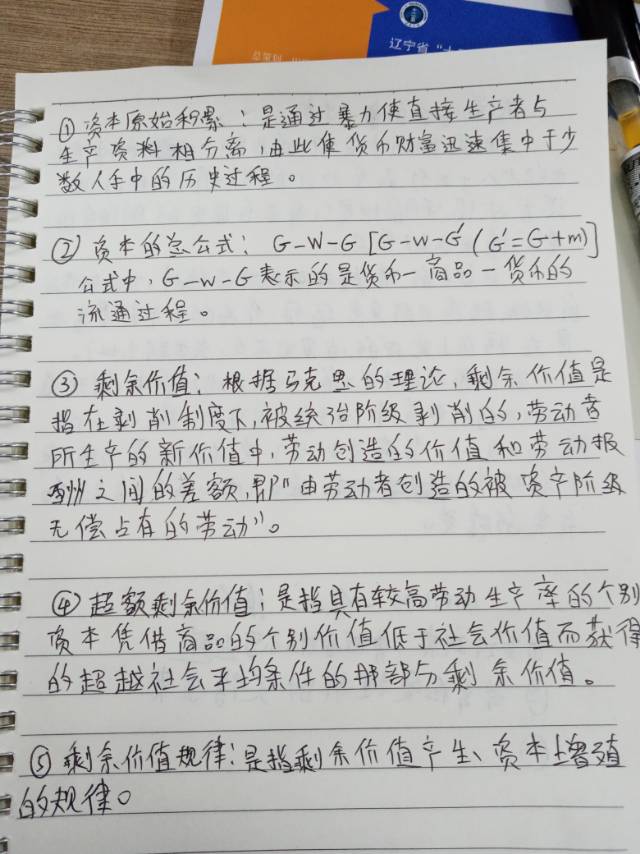 辽宁省"大
①资本原始积累：是通过暴力使直接生产者与
生产资料相分离，由此使货币财富迅速集中于少
数人手中的历史过程。
②资本的总公式：G-W-G [G-W-G′(G′=G+m)]
公式中，G-W-G表示的是货币-商品-货币的
流通过程。
③剩余价值：根据马克思的理论，剩余价值是
指在剥削制度下，被统治阶级剥削的，劳动者
所生产的新价值中，劳动创造的价值和劳动报
酬之间的差额，即"由劳动者创造的被资产阶级
无偿占有的劳动"。
④超额剩余价值：是指具有较高劳动生产率的个别
资本凭借商品的个别价值低于社会价值而获得
的超越社会平均条件的那部分剩余价值。
⑤剩余价值规律：是指剩余价值产生、资本增殖
的规律。